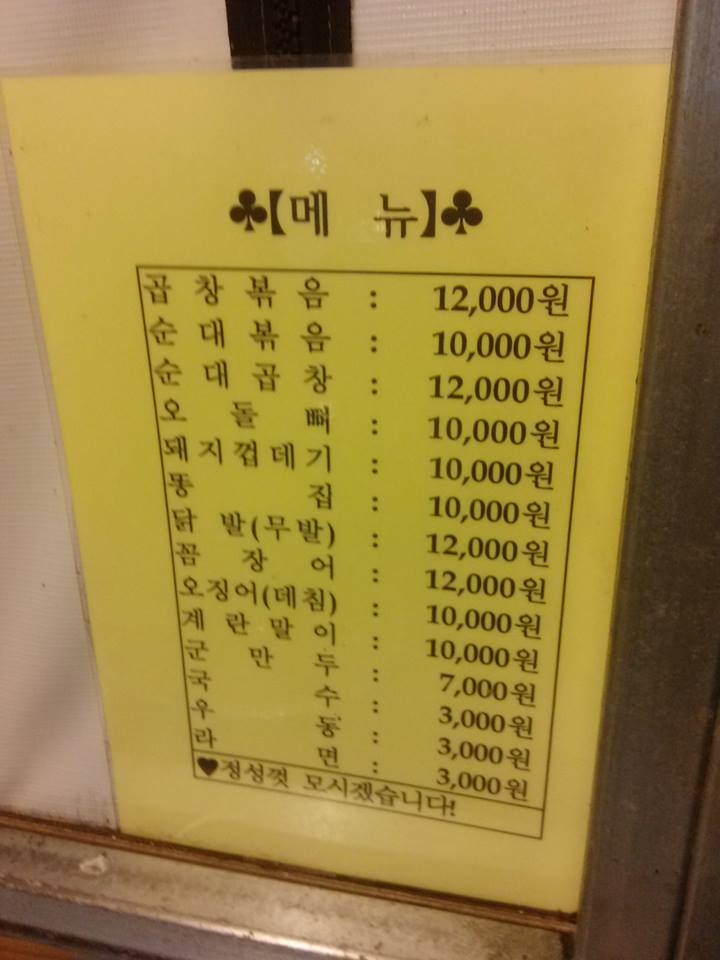 ♣【메 뉴】♣
곱창볶음 : 12,000원
순대볶음 : 10,000원
순대곱창 : 12,000원
오돌뼈 : 10,000원
돼지껍데기 : 10,000원
똥집 : 10,000원
닭발(무발) : 12,000원
꼼장어 : 12,000원
오징어(데침) : 10,000원
계란말이 : 10,000원
군만두 : 7,000원
국수 : 3,000원
우동 : 3,000원
라면 : 3,000원
♥정성껏 모시겠습니다!